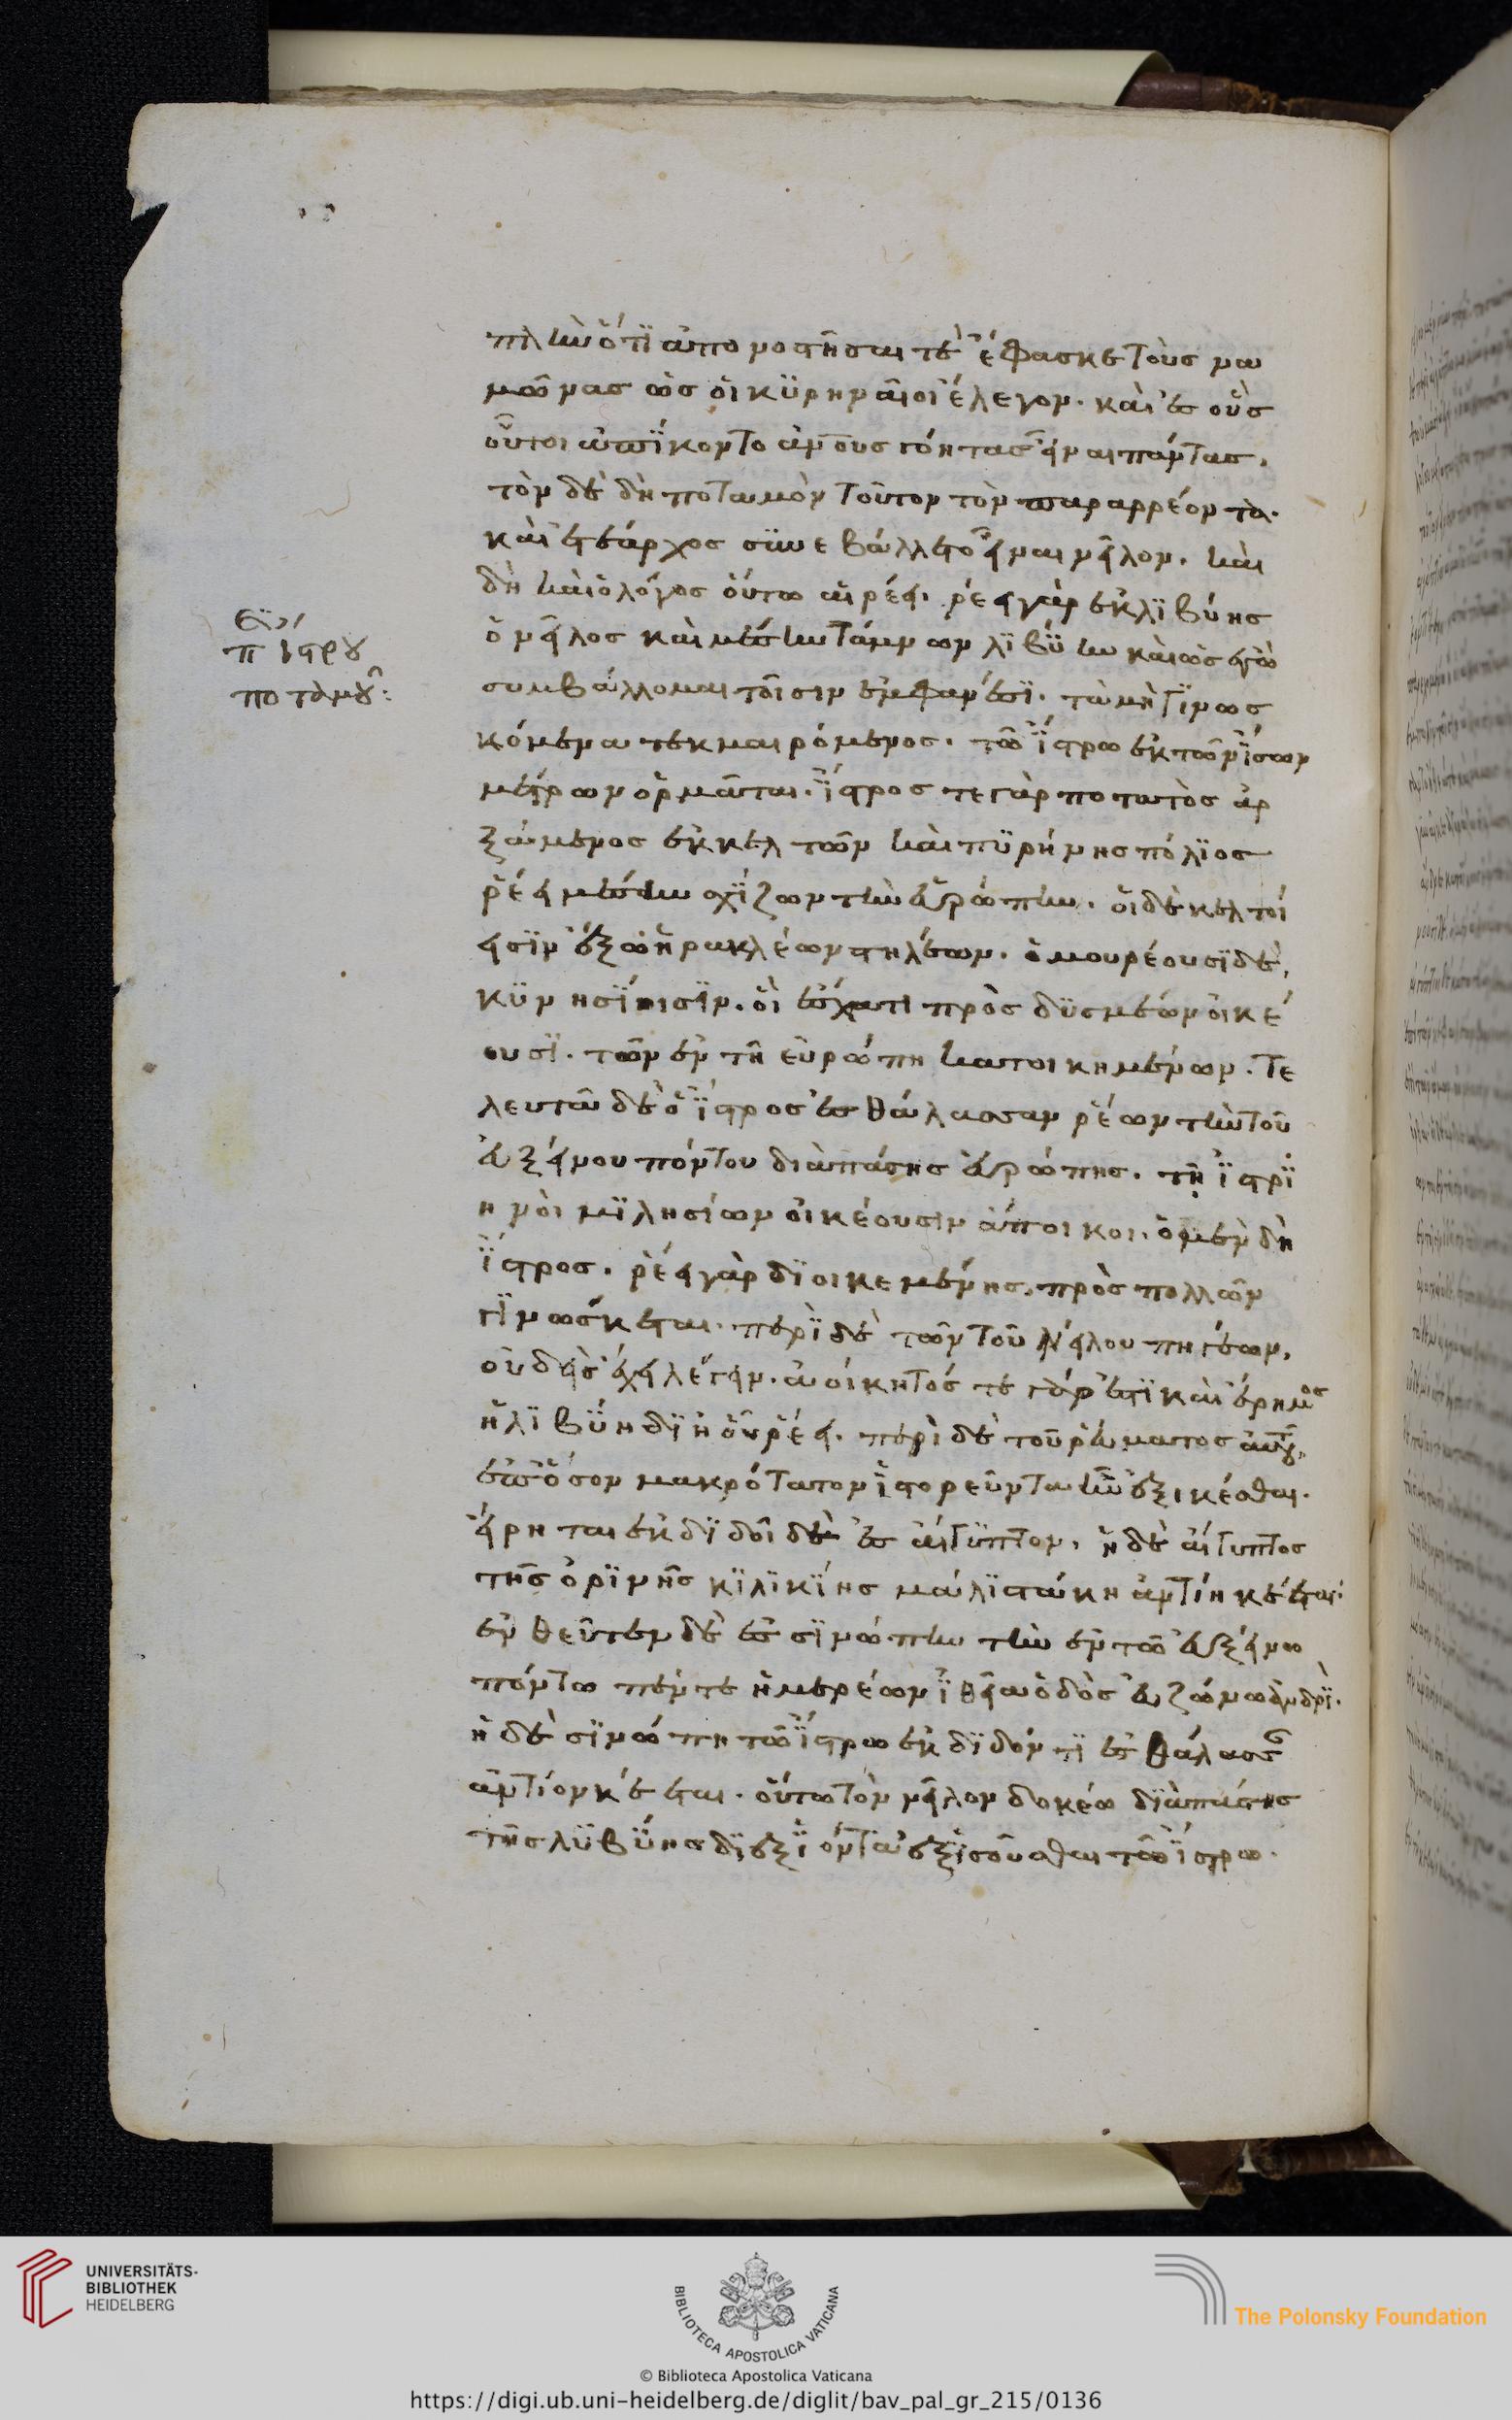 πλὴν ὅτι ἀπονοστῆσαι τὲ ἔφασκε τοὺς να
μῶνας ὡς οἱ κυρηναῖοι ἔλεγον. καὶ ἐς οὓς
οὗτοι ἀπίκοντο ἀν̅ο̅υ̅ς γόητας εἶναι πάντας.
τὸν δὲ δὴ ποταμὸν τοῦτον τὸν παραρρέοντα.
καὶ ἐτέαρχος συνεβάλλετο εἶναι νεῖλον. καὶ
δὴ καὶ ὁ λόγος οὕτω αἱρέει. ῥέει γὰρ ἐκ λιβύης
ὁ νεῖλος καὶ μέσην τάμνων λιβύην καὶ ὡς ἐγὼ
συμβάλλομαι τοῖσιν ἐμφανέσι. τὰ μὴ γινωσ
κόμενα τεκμαιρόμενος. τῶ ἴστρω ἐκ τῶν ἴσων
μέτρων ὁρμᾶται. ἴστρος τε γὰρ ποταμὸς ἀρ
ξάμενος ἐκ κελτῶν καὶ πυρήνης πόλιος
ῥέει μέσην σχίζων τὴν εὐρώπην. οἱ δὲ κελτοί
εἰσὶν ἔξω ἡρακλέων στηλέων. ὁμουρέουσι δὲ,
κυνησίοισιν. οἳ ἔσχατοι πρὸς δυσμέων οἰκέ
ουσι. τῶν ἐν τῆ εὐρώπη κατοικημένων. τε
λευτᾶ δὲ ὁ ἴστρος ἐς θάλασσαν ῥέων τὴν τοῦ
εὐξείνου πόντου διὰ πάσης εὐρώπης. τῆ ἰστρί
ηνοὶ μιλησίων οἰκέουσιν ἄποικοι. ὁ μὲν δὴ
ἴστρος. ῥέει γὰρ δι οἰκεμένης. πρὸς πολλῶν
γινώσκεται. περὶ δὲ τῶν τοῦ νείλου πηγέων,
οὐδεὶς ἔχει λέγειν. ἀοίκητός τε γάρ ἐστι καὶ ἔρημος
ἡ λιβύη δι ἧς ῥέει. περὶ δὲ τοῦ ῥεύματος αὐτοῦ,
ἐπ ὅσον μακρότατον ἱστορεῦντα ἦν ἐξικέσθαι.
εἴρηται ἐκδιδοῖ δὲ ἐς αἴγυπτον. ἡ δὲ αἴγυπτος
τῆς ὀρινῆς κιλικίης μάλιστά κη ἀντίη κέεται.
ἐνθεῦτεν δὲ ἐς σινώπην τὴν ἐν τῶ εὐξείνω
πόντω πέντε ἡμερέων ἰθεῖα ὁδὸς εὐζώνω ἀνδρὶ.
ἡ δὲ σινώπη τῶ ἴστρω ἐκδιδόντι ἐς θάλασσαν
ἀντίον κέεται. οὕτω τὸν νεῖλον δοκέω διὰ πάσης
τῆς λυβύης διεξιόντα ἐξισοῦσθαι τῶ ἴστρω.
π ιστρου
ποταμοῦ:
UNIVERSITÄTS-
BIBLIOTHEK
HEIDELBERG
BIBLIOTECA APOSTOLICA VATICANA
The Polonsky Foundation
© Biblioteca Apostolica Vaticana
https://digi.ub.uni-heidelberg.de/diglit/bav_pal_gr_215/0136